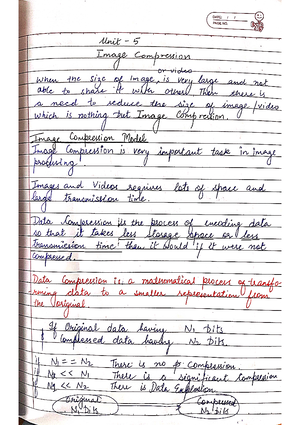 DATE: / /
PAGE NO.
Unit - 5
Image Compression
or video
When the size of image, is very large and not
able to share it with other. Then there is
a need to reduce the size of image/video
which is nothing but Image Compression.
Image Compression Model
Image Compression is very important task in image
processing
Images and Videos requires lots of space and
large transmission time.
Data Compression is the process of encoding data
so that it takes less storage space or less
transmission time then it would if it were not
compressed.
Data Compression is a mathematical process of transfo-
rming data to a smaller representation from
the original.
If Original data having N1 bits
Compressed data having N2 bits.
if N1 == N2 There is no compression.
N2 << N1 There is a significant Compression
N1 << N2 There is Data Explosion
Original
N1 bits
Compressed
N2 bits